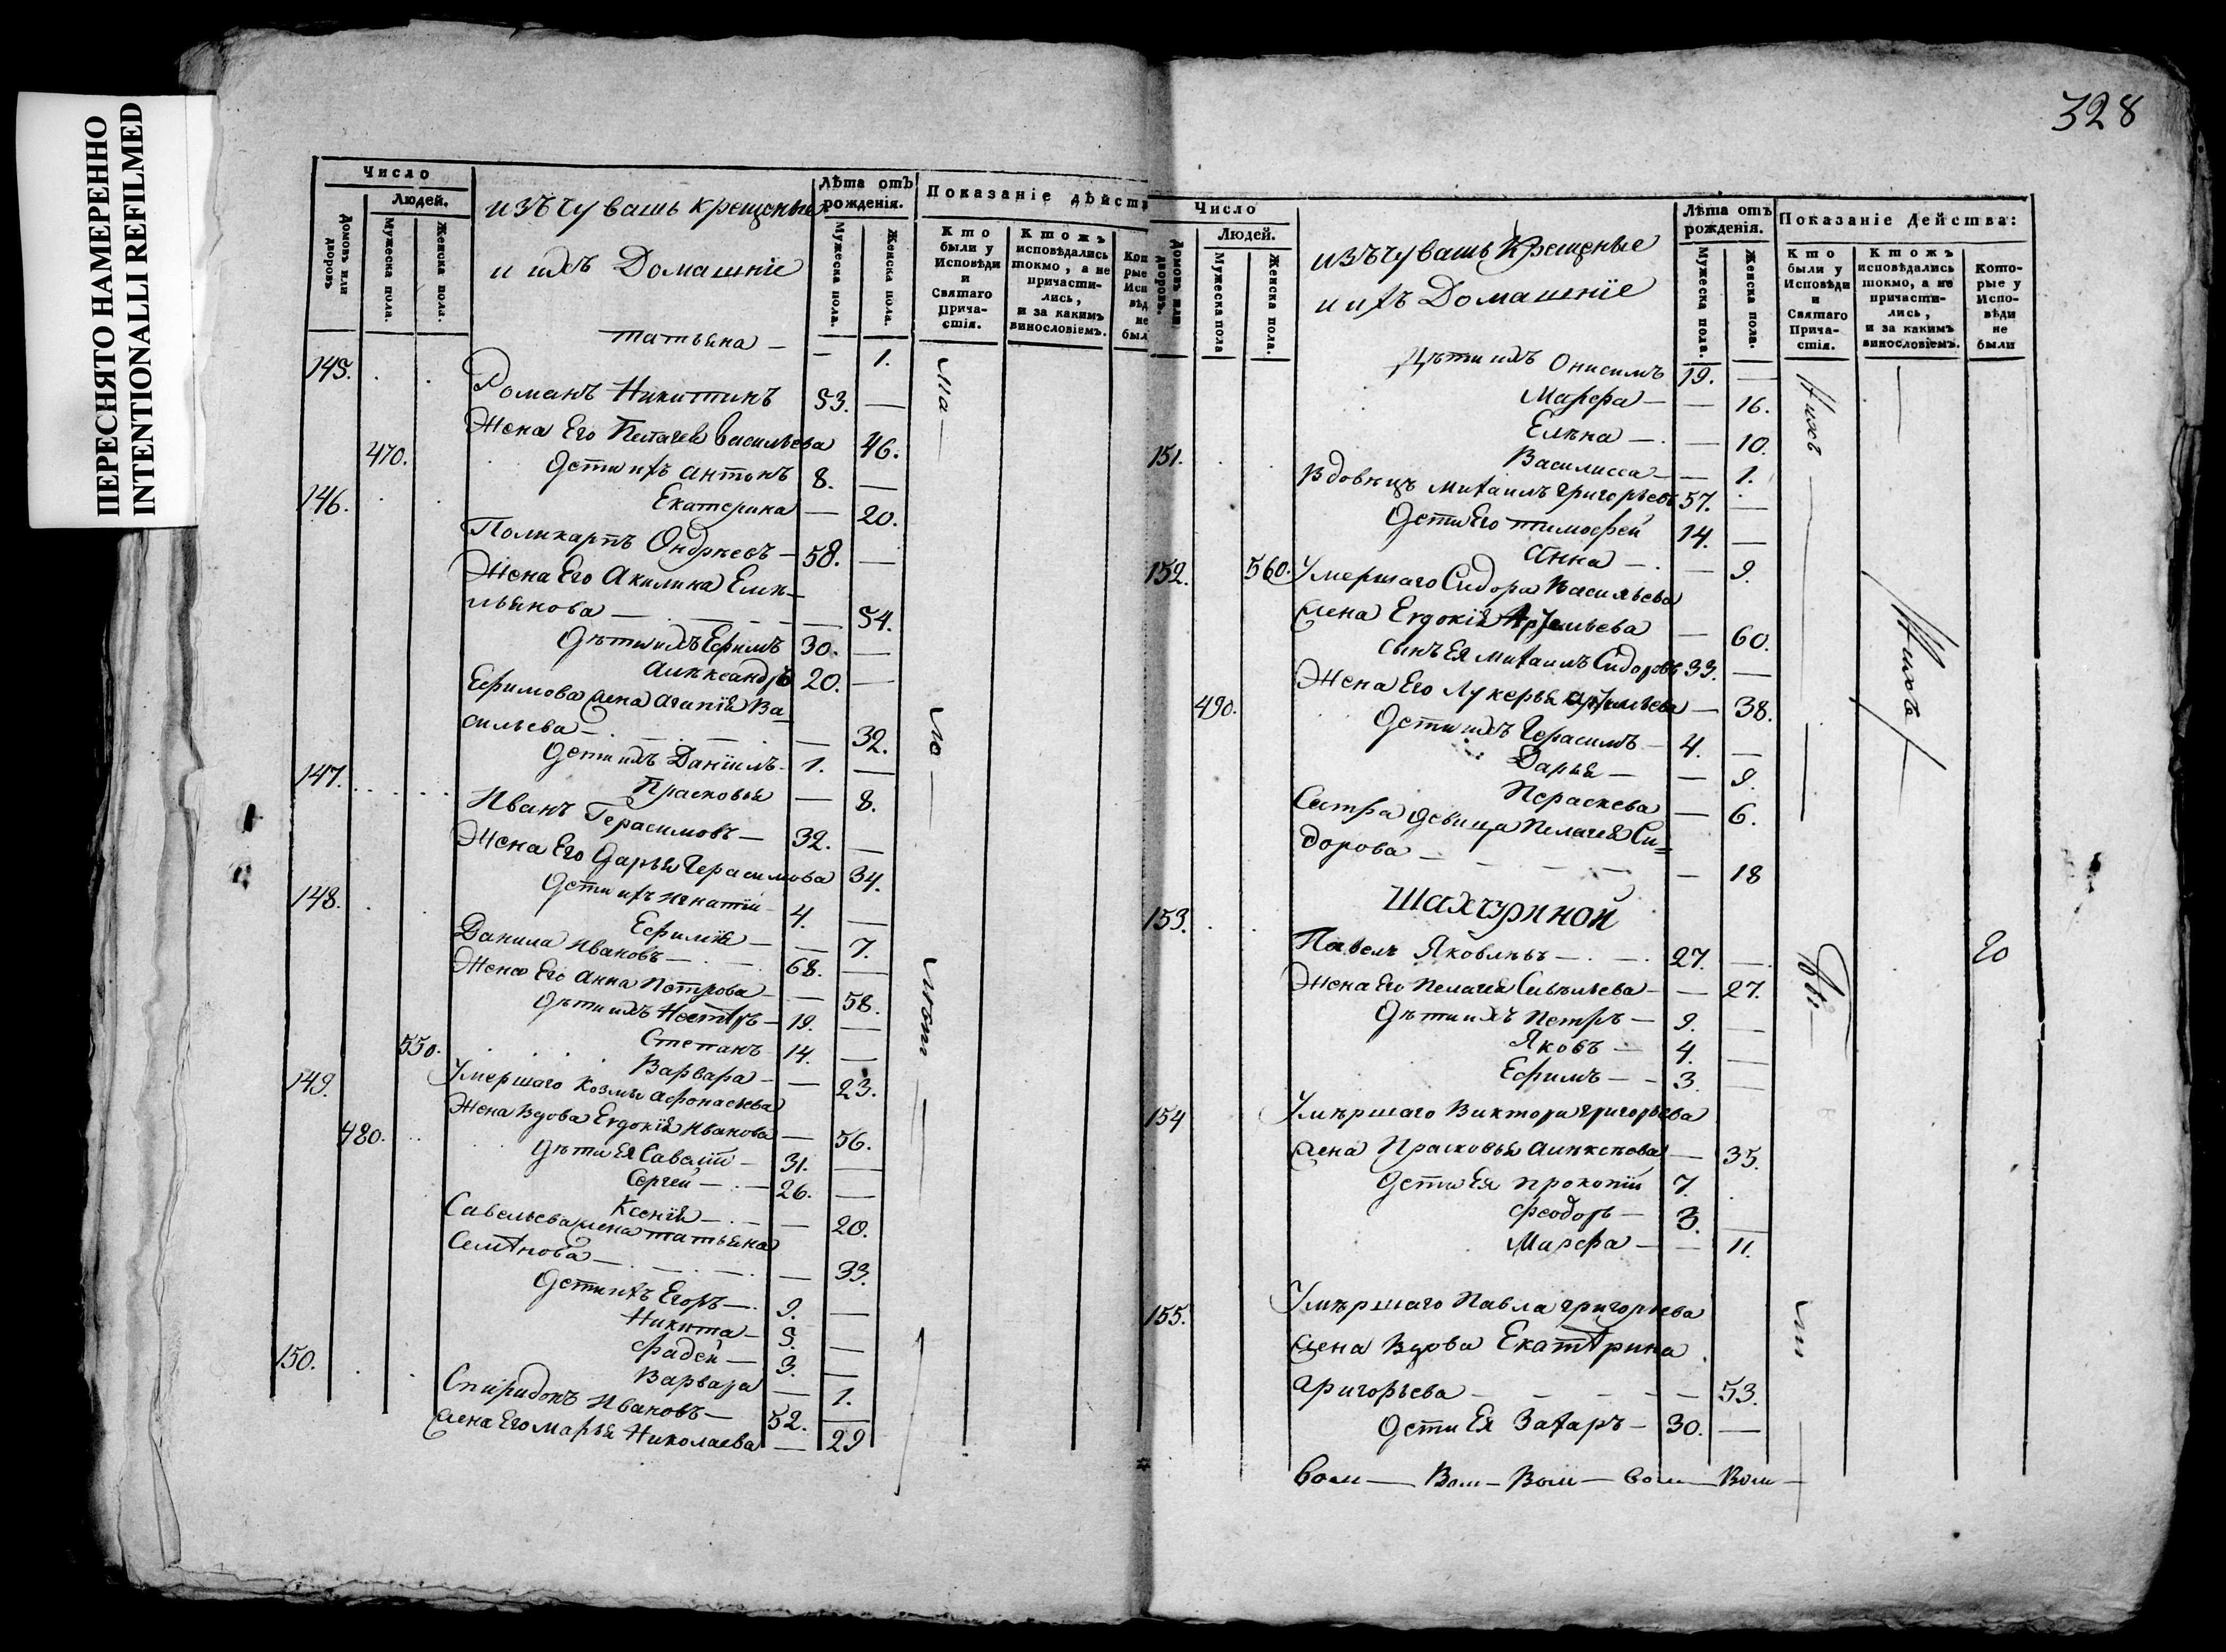 ПЕРЕСНЯТО НАМЕРЕННО
INTENTIONALLI REFILMED
Число
Людей.
Домовъ или дворовъ
Мужеска пола.
Женска пола.
изъ чувашь крещеные
и ихъ Домашніе
Лѣта отъ рожденія.
Мужеска пола.
Женска пола.
Показаніе дѣйств
Кто были у Исповѣди и Святаго Прича-стія.
Ктожъ исповѣдались токмо, а не причасти-лись, и за какимъ винословіемъ.
Кот рые Исп вѣд не был
татьяна — — 1.
145. Романъ Никитинъ 53. —
Жена Его Пелагея васильева 46.
470. Дети ихъ антонъ 8. —
Екатерина — 20.
146. Поликарпъ Ондреевъ — 58. —
Жена Его Акилина Еми-
льянова — — 54.
Дѣти ихъ Ефимъ 30. —
алѣксандръ 20. —
Ефимова жена агапія Ва-
сильева — — 32.
Дети ихъ Даніилъ 1. —
Прасковья — 8.
147. Иванъ Герасимовъ — 32. —
Жена Его Дарья Герасимова 34.
Дети ихъ игнатіи 4. —
Ефимія — — 7.
148. Данила ивановъ — 68. —
Жена Его анна Петрова — — 58.
Дѣти ихъ Нестеръ — 19. —
Степанъ 14. —
550. Варвара — — 23.
149. Умершаго Козмы афонасьева
Жена вдова Евдокія иванова — 56.
480. Дѣти Ея Савелій — 31. —
Сергей — 26. —
Ксенія — — 20.
Савельева жена татьяна
Семѣнова — — 33.
Дети ихъ Егоръ — 9. —
Никита — 5. —
фадей — 3. —
Варвара — 1.
150. Спиридонъ ивановъ — 52. —
жена Его марья Николаева — 29
328
Число
Людей.
Домовъ или дворовъ.
Мужеска пола
Женска пола.
изъ чувашь Крещеные
и ихъ Домашніе
Лѣта отъ рожденія.
Мужеска пола.
Женска пола.
Показаніе Действа:
Кто были у Исповѣди и Святаго Прича-стія.
Ктожъ исповѣдались токмо, а не причасти-лись, и за какимъ винословіемъ.
Кото-рые у Испо-вѣди не были
Дѣти ихъ Онисимъ 19. —
Марфа — — 16.
Елѣна — — 10.
Василисса — — 1.
151. Вдовецъ михаилъ григорьевъ 57. —
Дети Его тимофей 14. —
Анна — — 9.
152. 560. Умершаго Сидора васильева
жена Евдокія Артемьева — 60.
сынъ Ея михаилъ Сидоровъ 33. —
Жена Его Лукерья артемьева — 38.
490. Дети ихъ Герасимъ — 4. —
Дарья — — 9.
Параскева — 6.
Сестра девица Пелагея Си=
дорова — — 18
Шахчуриной
153. Павелъ Яковлѣвъ — 27. —
Жена Его Пелагея Савельева — — 27.
Дѣти ихъ Петръ — 9. —
Яковъ — 4. —
Ефимъ — — 3. —
154 Умѣршаго Виктора григорьева
жена Прасковья алѣксѣева — 35.
Дети Ея прокопіи 7.
феодоръ — 3. —
Марфа — — 11.
155. Умѣршаго Павла григорьева
жена вдова Екатѣрина
григорьева — — 53.
Дети Ея Захаръ — 30. —